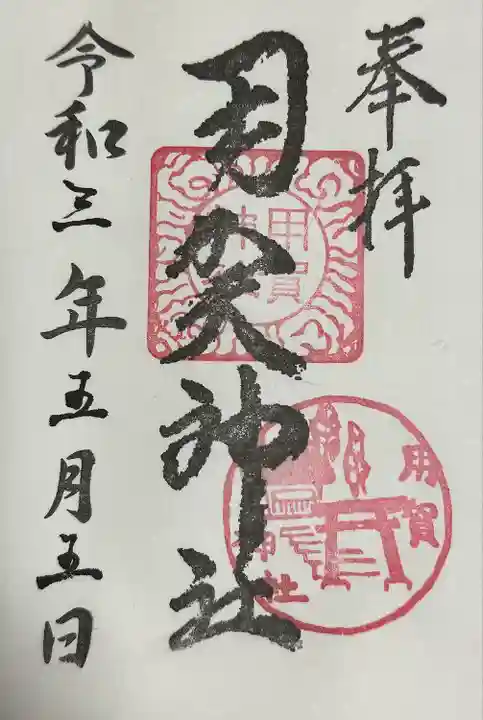 奉拝
用賀神社
用賀神社
用賀神社
令和三年五月五日